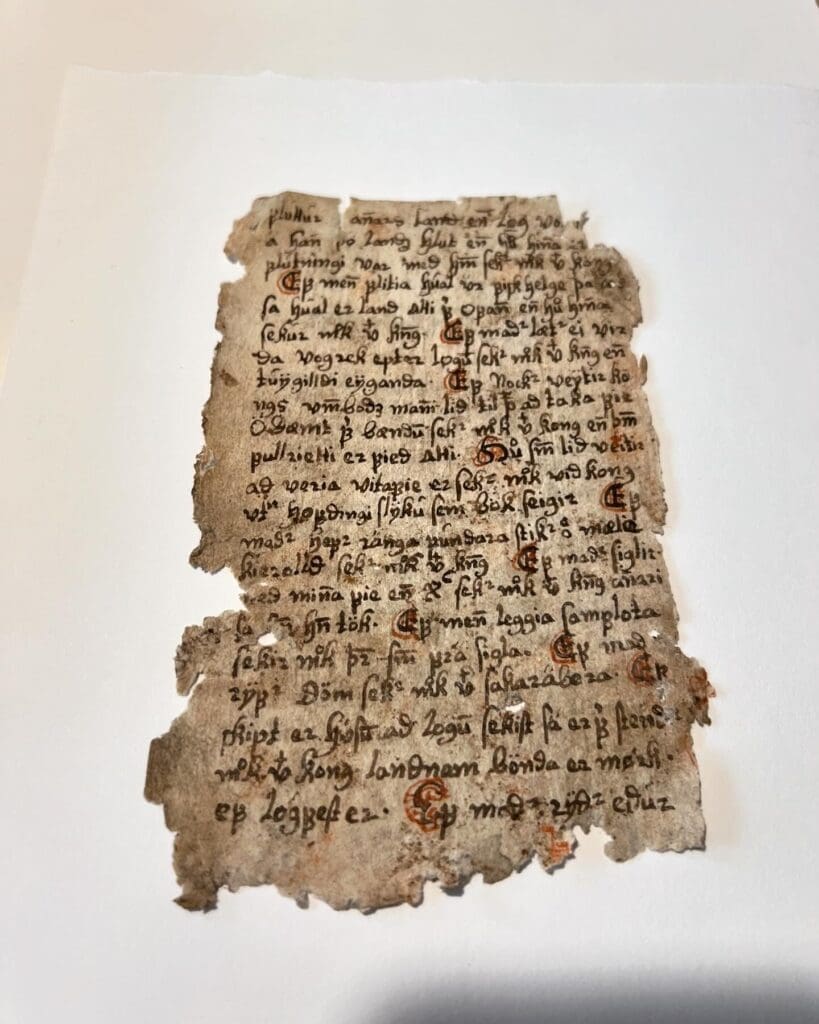 pluttur añars land en̄ log vo
a han̄ po landz hlut en̄ hū hin̄a er
plutningi var med hm̄ sekr mk v kong
Ep men̄ plitia húal vr pipk helge þa
sa húal er land atti þ opan̄ en̄ hū hm̄a
sekúr mk v kn̄g. Ep madr læt ei vir
da vogrek epter logū sekr mk v kn̄g en
túÿgilldi eÿganda. Ep nockr veÿtir ko
ngs vm̄bodz man̄i lid til þ ad taka pie
odæmt þ bændū sekr mk v kong en̄ om̄
pullrietti er pied atti. sm̄ lid veitir
ad veria vitapie er sekr mk vid kong
vtn hopdingi slÿkū sem bök seigir Ep
madr hepr ránga púndara stikr mæle
kierolld sekr mk v kn̄g Ep madr siglir
med min̄a pie en̄ sekr mk v kn̄g an̄ari
sa hn̄ tök. Ep men̄ leggia samplota
sekir mk þr sm̄ prá sigla. Ep mad
rÿpr döm sekr mk v sakarábera. Ep
skipt er húsū ad logū sekist sa er þ stend
mk v kong. landnam bönda er mork.
ep lógpest er. Ep madr rÿdr edúr